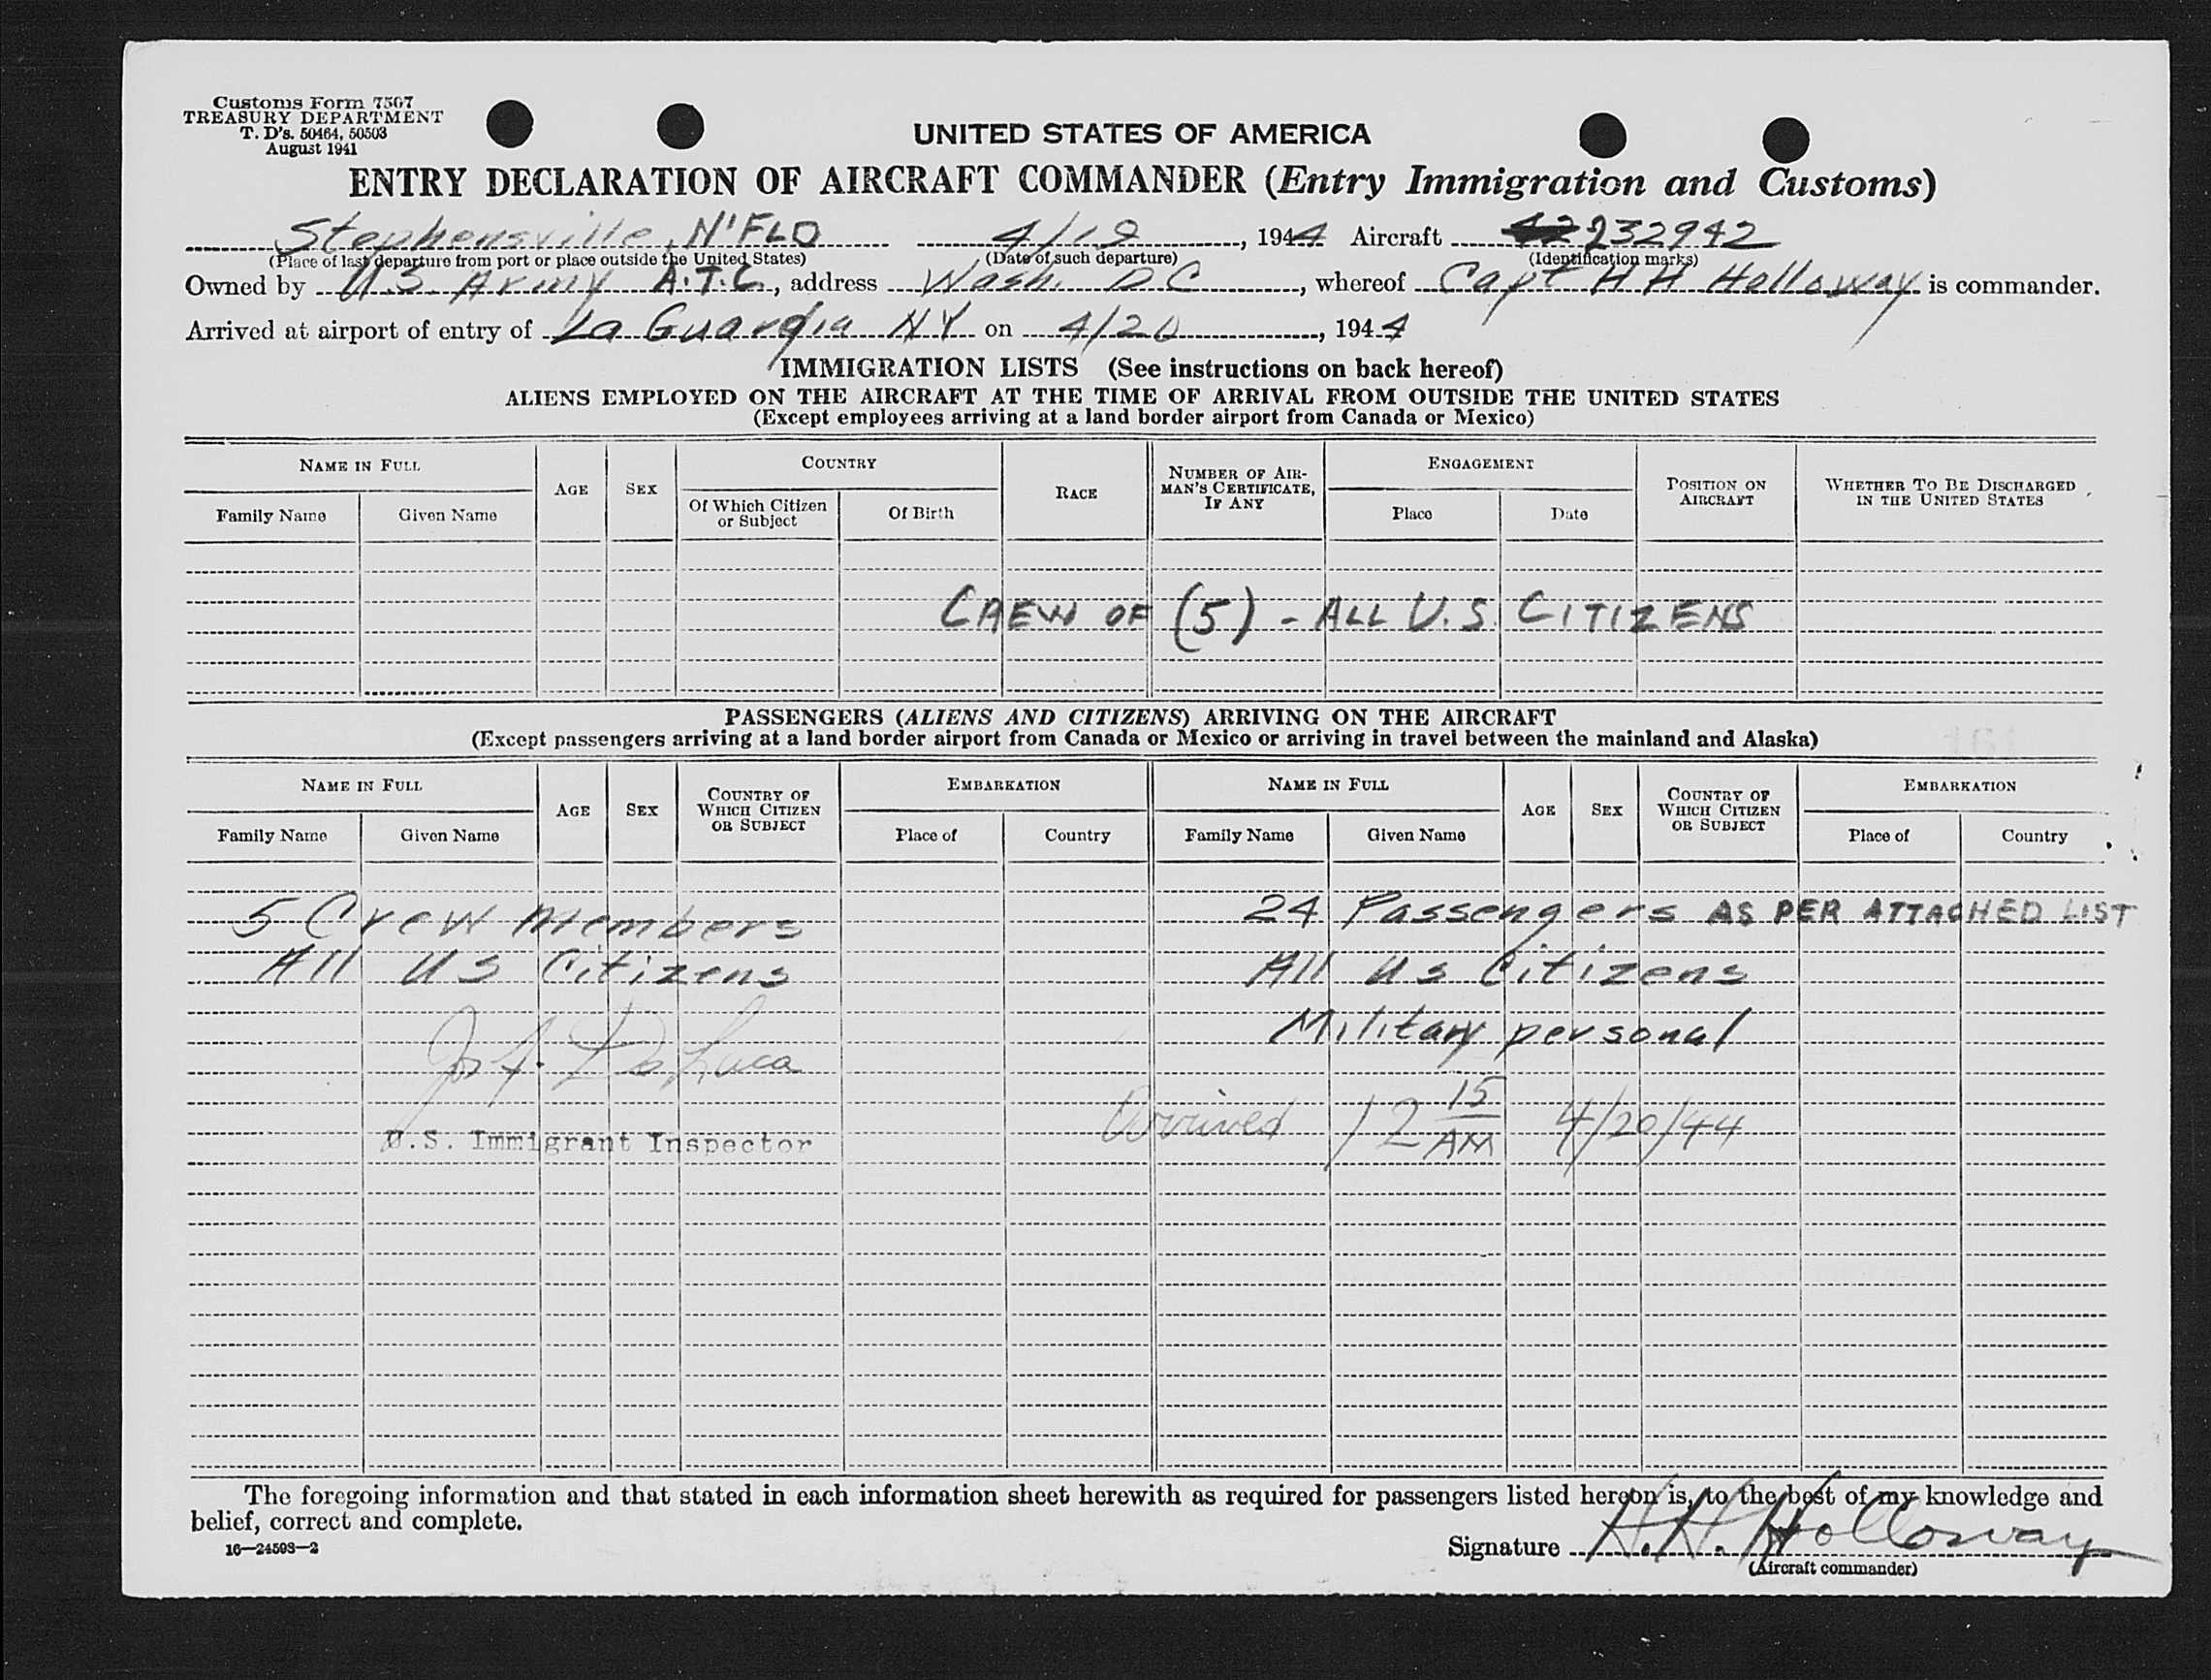 Customs Form 7507
TREASURY DEPARTMENT
T. D's. 50464, 50503
August 1941
UNITED STATES OF AMERICA
ENTRY DECLARATION OF AIRCRAFT COMMANDER (Entry Immigration and Customs)
Stephensville, N'FLD 4/19, 1944 Aircraft 232942
(Place of last departure from port or place outside the United States) (Date of such departure) (Identification marks)
Owned by U.S. Army A.T.C., address Wash. D C, whereof Capt H H Holloway is commander.
Arrived at airport of entry of La Guardia NY on 4/20, 1944
IMMIGRATION LISTS (See instructions on back hereof)
ALIENS EMPLOYED ON THE AIRCRAFT AT THE TIME OF ARRIVAL FROM OUTSIDE THE UNITED STATES
(Except employees arriving at a land border airport from Canada or Mexico)
NAME IN FULL AGE SEX COUNTRY RACE NUMBER OF AIRMAN'S CERTIFICATE, IF ANY ENGAGEMENT POSITION ON AIRCRAFT WHETHER TO BE DISCHARGED IN THE UNITED STATES
Family Name Given Name Of Which Citizen or Subject Of Birth Place Date
CREW OF (5) - ALL U.S. CITIZENS
PASSENGERS (ALIENS AND CITIZENS) ARRIVING ON THE AIRCRAFT
(Except passengers arriving at a land border airport from Canada or Mexico or arriving in travel between the mainland and Alaska)
NAME IN FULL AGE SEX COUNTRY OF WHICH CITIZEN OR SUBJECT EMBARKATION NAME IN FULL AGE SEX COUNTRY OF WHICH CITIZEN OR SUBJECT EMBARKATION
Family Name Given Name Place of Country Family Name Given Name Place of Country
5 Crew Members 24 Passengers AS PER ATTACHED LIST
All US Citizens All US Citizens
Military personal
Jos. A. DeLuca
Arrived 12 15 AM 4/20/44
U.S. Immigrant Inspector
The foregoing information and that stated in each information sheet herewith as required for passengers listed hereon is, to the best of my knowledge and
belief, correct and complete.
16—24593—2
Signature H. H. Holloway
(Aircraft commander)